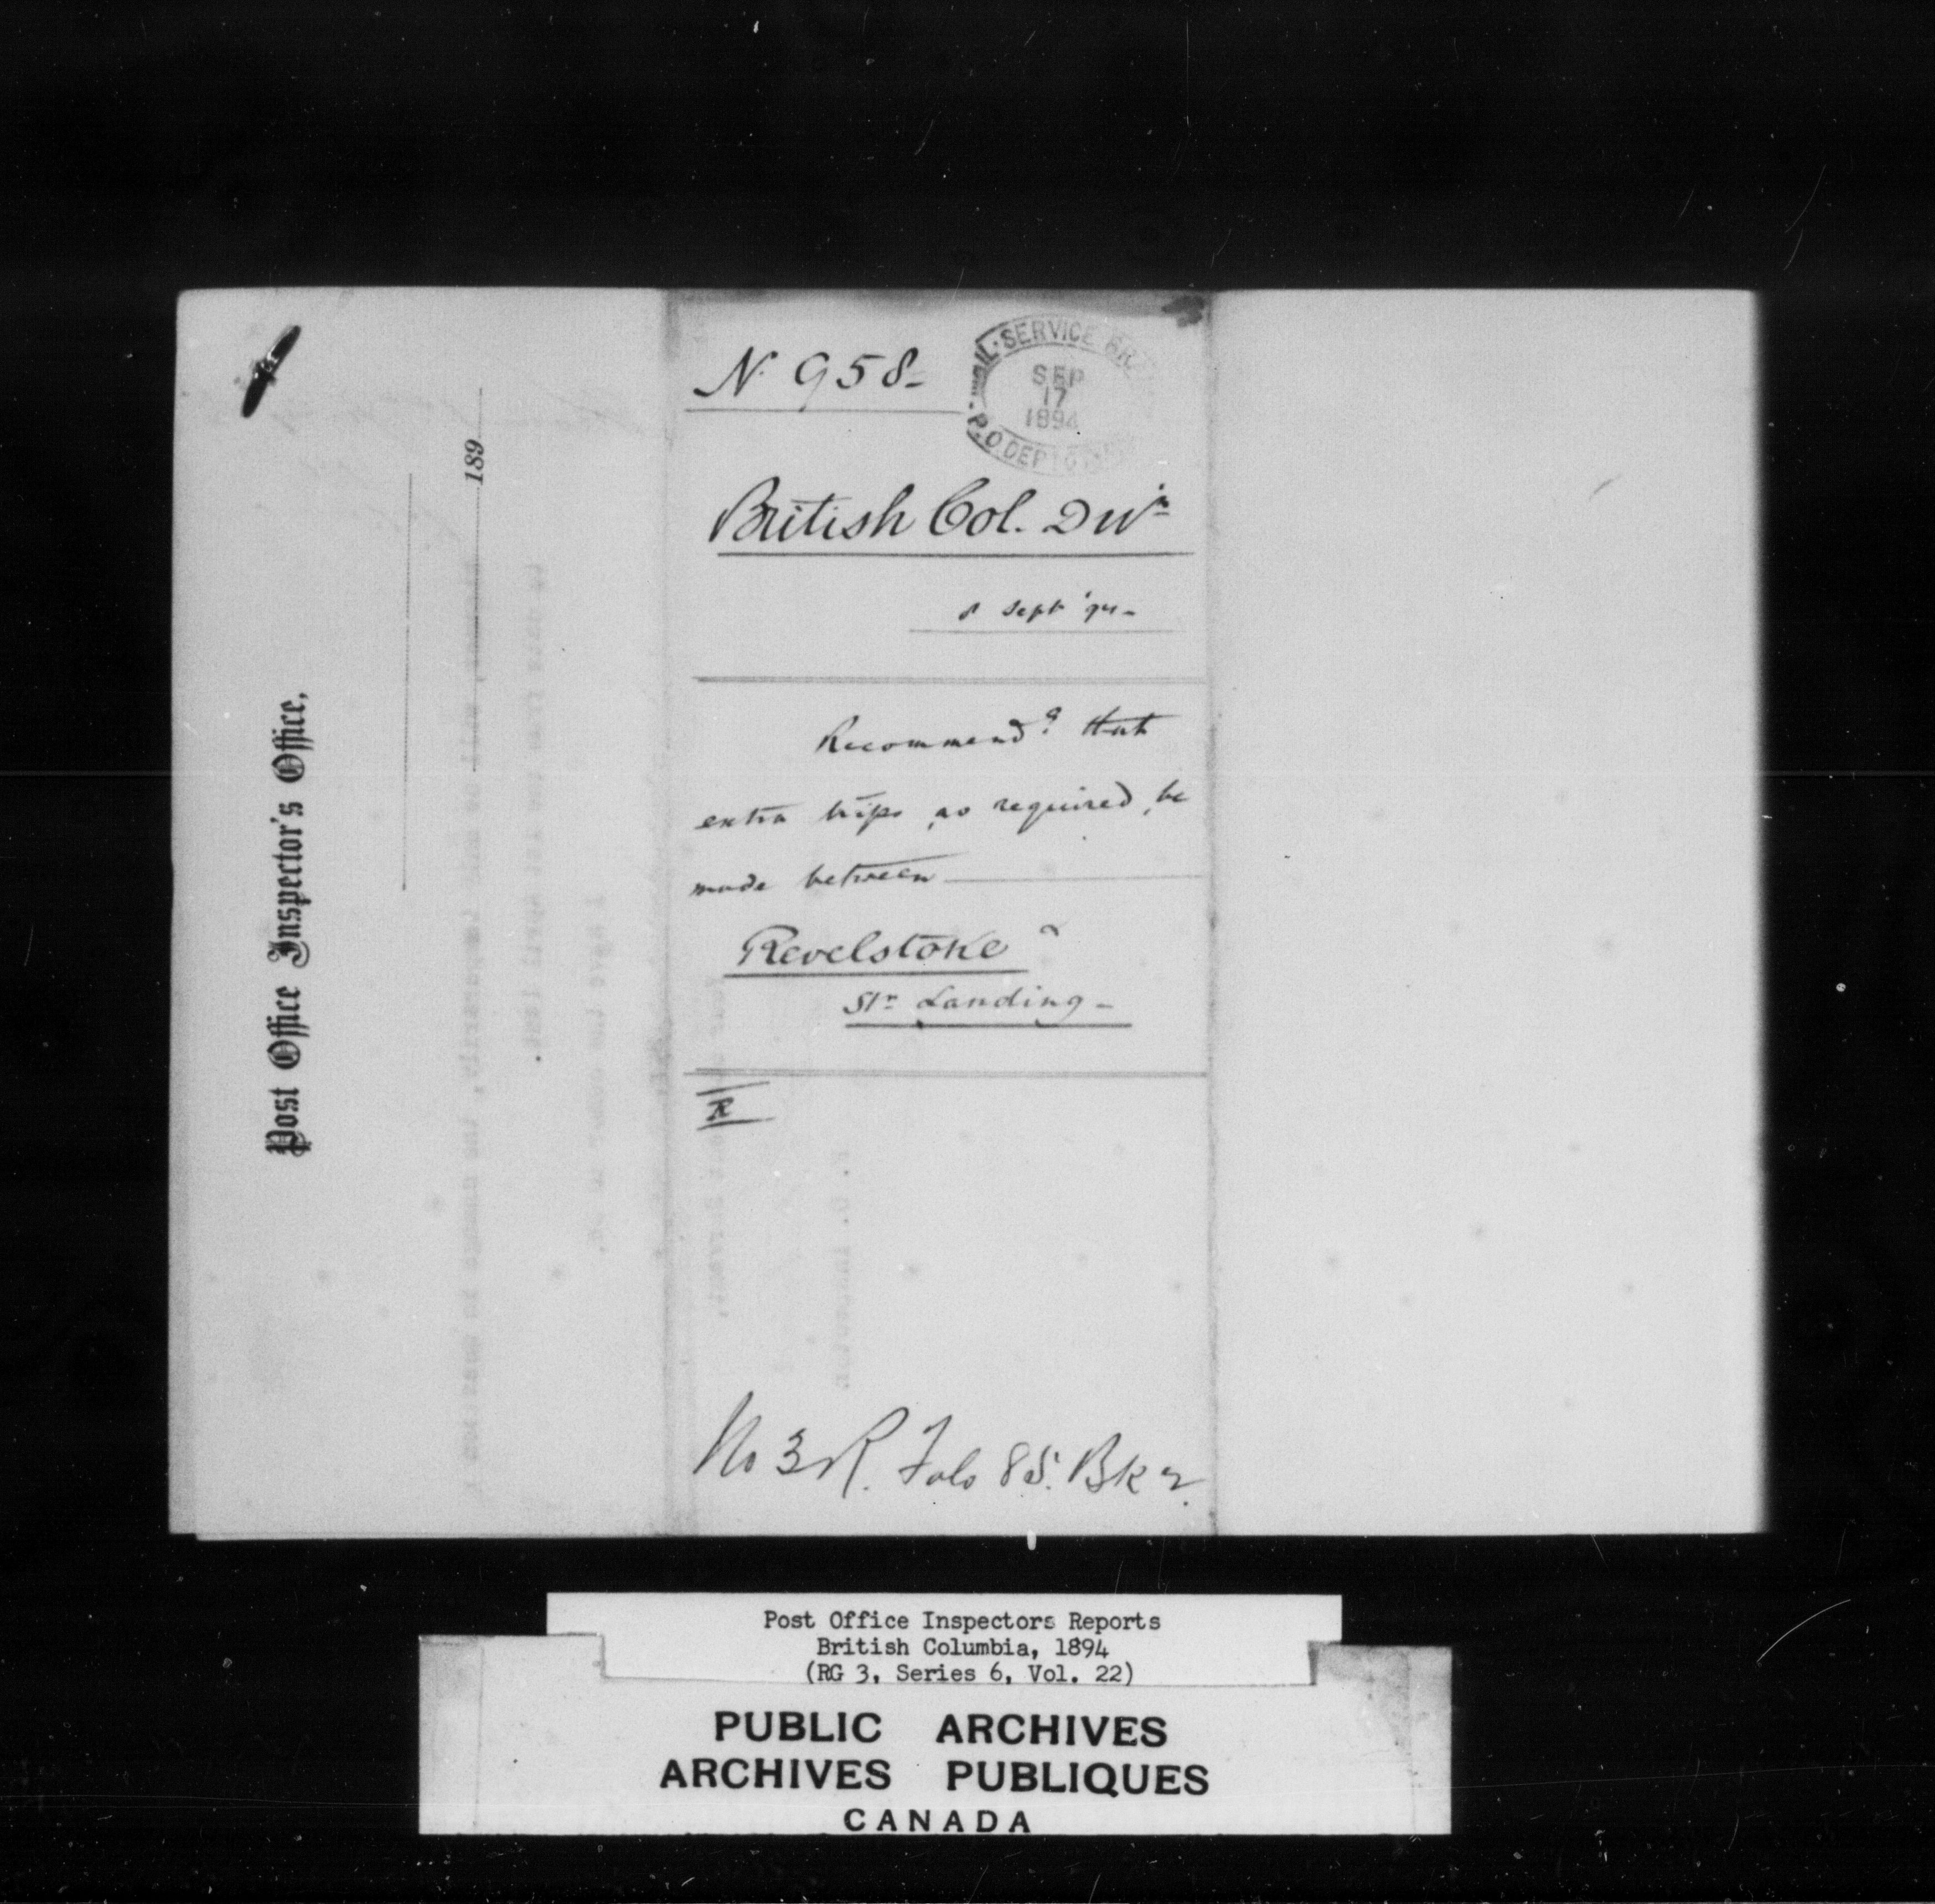 Post Office Inspector's Office,
189
N. 958-
MAIL SERVICE BR
SEP
17
1894
P.O. DEPT
British Col. Divn
8 Sept '94-
Recommendg that
extra trips, as required, be
made between
Revelstoke &
Str Landing-
R
No 3 R. Folo 85. Bk 2.
Post Office Inspectors Reports
British Columbia, 1894
(RG 3, Series 6, Vol. 22)
PUBLIC ARCHIVES
ARCHIVES PUBLIQUES
CANADA